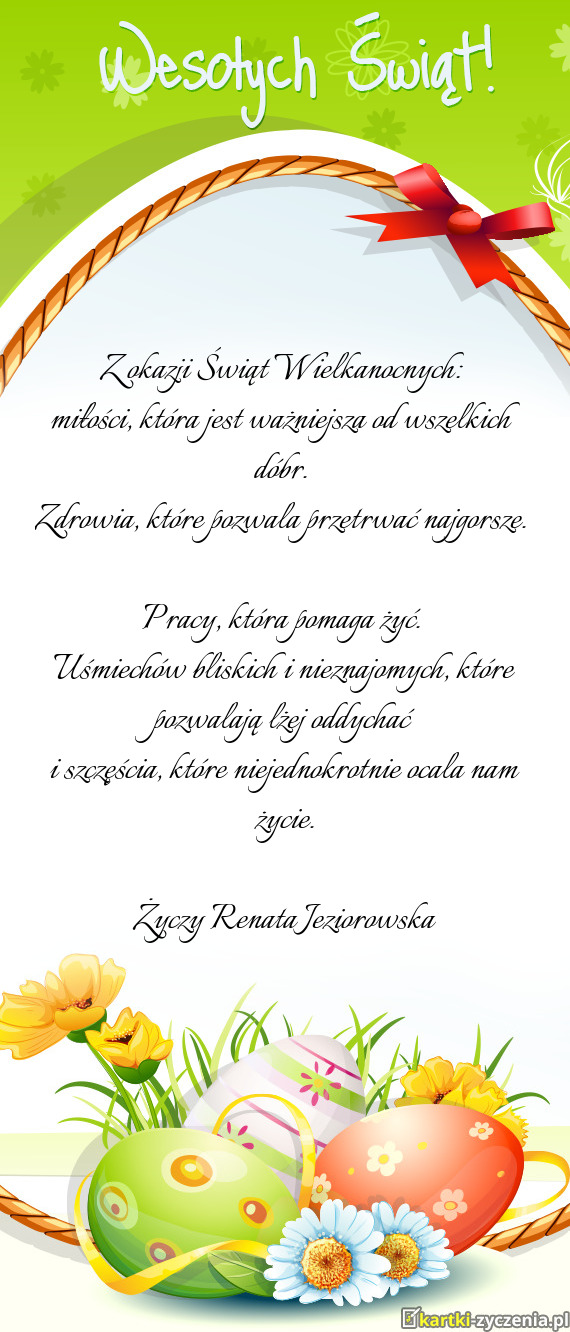 Wesołych Świąt!
Z okazji Świąt Wielkanocnych:
miłości, która jest ważniejsza od wszelkich
dóbr.
Zdrowia, które pozwala przetrwać najgorsze.
Pracy, która pomaga żyć.
Uśmiechów bliskich i nieznajomych, które
pozwalają lżej oddychać
i szczęścia, które niejednokrotnie ocala nam
życie.
Życzy Renata Jeziorowska
kartki-zyczenia.pl